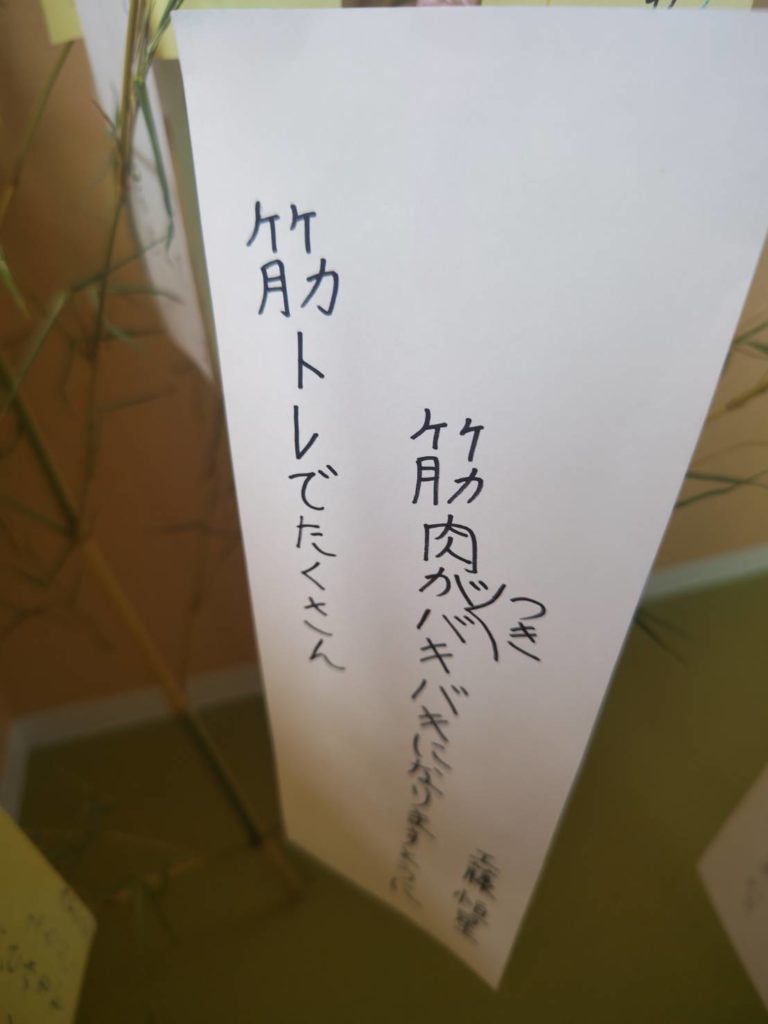 筋トレでたくさん
筋肉がつきバキバキになりますように
工藤